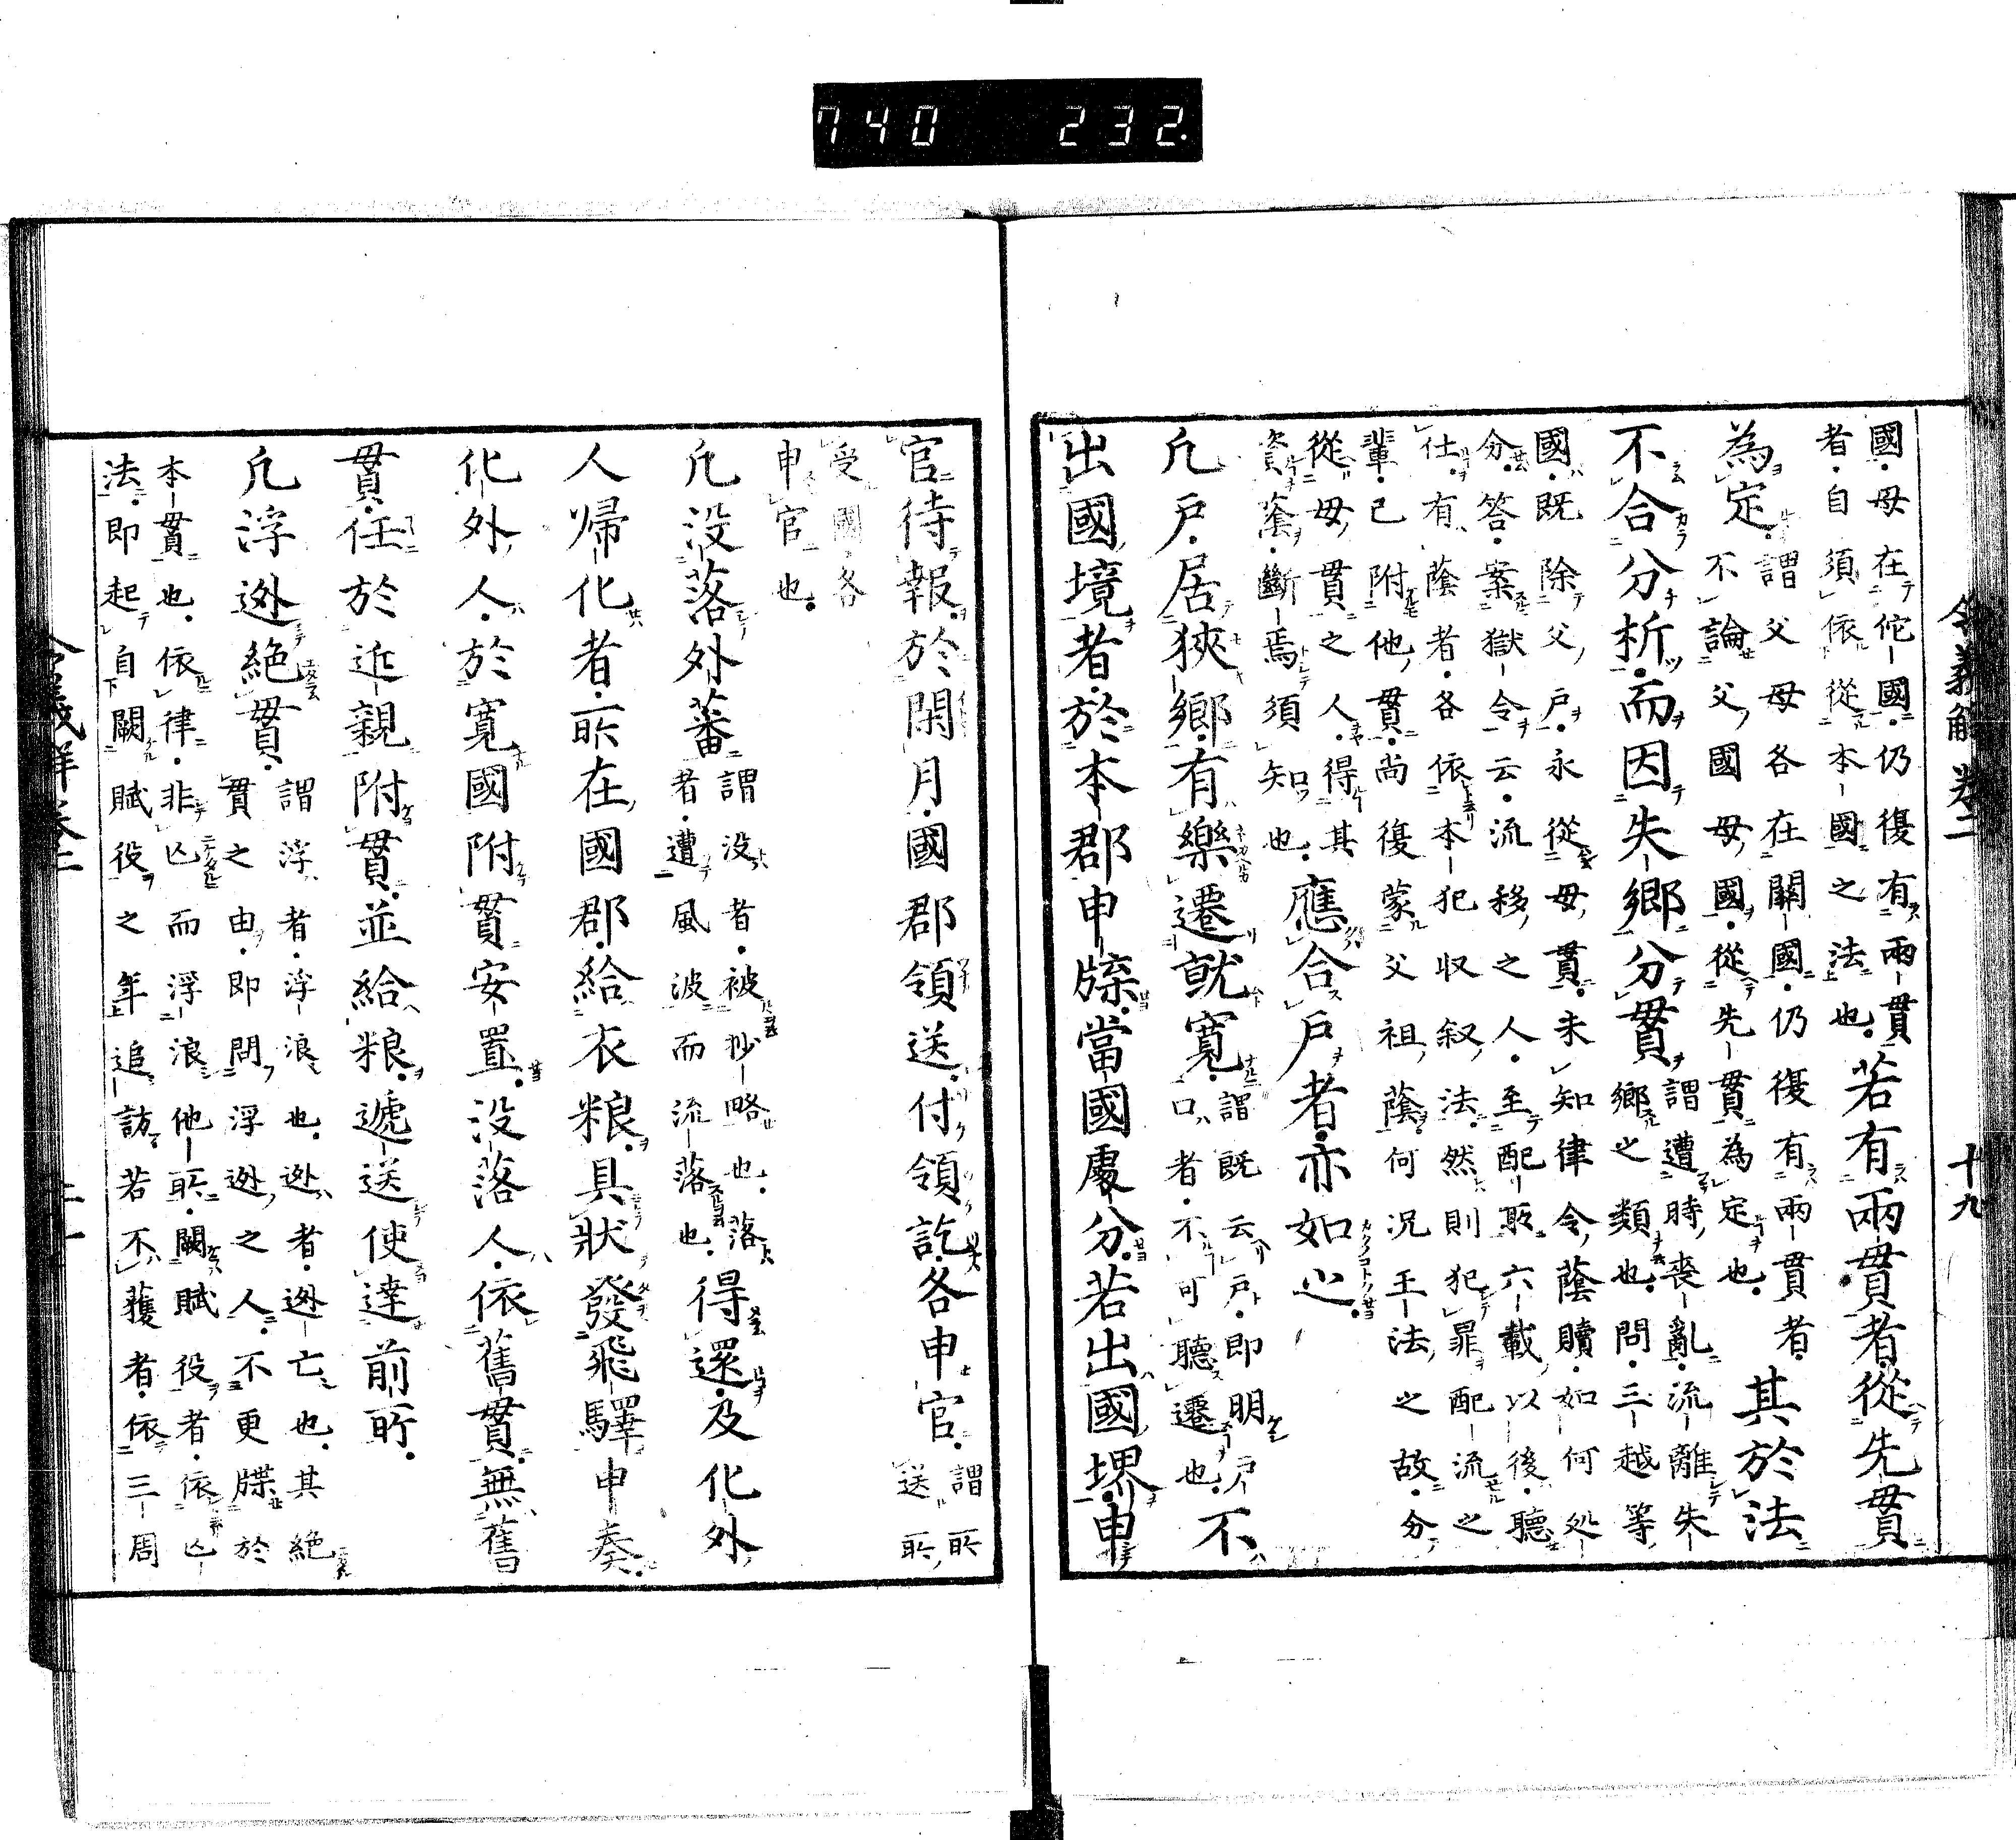 740 232
令義解 卷二 十九
國母在佗國仍復有兩貫
者自須依從本國之法也
若有兩貫者從先貫
為定
謂父母各在關國仍復有兩貫者
不論父國母國從先貫為定也
其於法
不合分析而因失鄉分貫
謂遭時喪亂流離失
鄉之類也問三越等
國既除父戶永從母貫未知律令蔭贖如何処
分答案獄令云流移之人至配所六載以後聽
仕有蔭者各依本犯収叙法然則犯罪配流之
輩已附他貫尚復蒙父祖蔭何況王法之故分
從母貫之人得其
資蔭斷焉須知也
應合戶者亦如之
凡戶居狹鄉有樂遷就寬
謂既云戶即明戶
口者不可聽遷也
不
出國境者於本郡申牒當國處分若出國堺申
官待報於閑月國郡領送付領訖各申官
謂所
送所
受國各
申官也
凡沒落外蕃
謂沒者被抄略也落
者遭風波而流落也
得還及化外
人帰化者所在國郡給衣粮具狀發飛驛申奏
化外人於寬國附貫安置沒落人依舊貫無舊
貫任於近親附貫並給粮遞送使達前所
凡浮逃絕貫
謂浮者浮浪也逃者逃亡也其絕
貫之由即問浮逃之人不更牒於
本貫也依律非亡而浮浪他所闕賦役者依亡
法即起自闕賦役之年追訪若不獲者依三周
令義解卷二